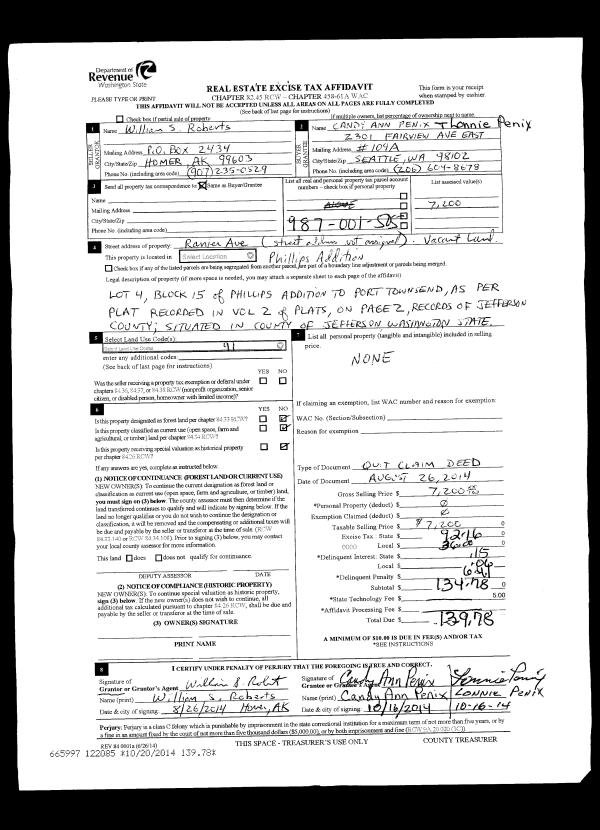 Department of
Revenue
Washington State
PLEASE TYPE OR PRINT
REAL ESTATE EXCISE TAX AFFIDAVIT
CHAPTER 82.45 RCW – CHAPTER 458-61A WAC
This form is your receipt
when stamped by cashier.
THIS AFFIDAVIT WILL NOT BE ACCEPTED UNLESS ALL AREAS ON ALL PAGES ARE FULLY COMPLETED
(See back of last page for instructions)
Check box if partial sale of property
If multiple owners, list percentage of ownership next to name.
1 Name William S. Roberts
SELLER GRANTOR
Mailing Address P.O. Box 2434
City/State/Zip HOMER, AK 99603
Phone No. (including area code) (907) 235-0529
2 Name CANDY ANN PENIX + Lonnie Penix
2301 FAIRVIEW AVE EAST
BUYER GRANTEE
Mailing Address #109A
City/State/Zip SEATTLE, WA 98102
Phone No. (including area code) (206) 604-8678
3 Send all property tax correspondence to: Same as Buyer/Grantee
Name
Mailing Address
City/State/Zip
Phone No. (including area code)
List all real and personal property tax parcel account
numbers – check box if personal property
987-001-505
List assessed value(s)
7,200
4 Street address of property: Rainier Ave (street address not assigned). Vacant Land.
This property is located in Select Location Phillips Addition
Check box if any of the listed parcels are being segregated from another parcel, are part of a boundary line adjustment or parcels being merged.
Legal description of property (if more space is needed, you may attach a separate sheet to each page of the affidavit)
LOT 4, BLOCK 15 of PHILLIPS ADDITION TO PORT TOWNSEND, AS PER
PLAT RECORDED IN VOL 2 of PLATS, ON PAGE 2, RECORDS OF JEFFERSON
COUNTY; SITUATED IN COUNTY OF JEFFERSON WASHINGTON STATE.
5 Select Land Use Code(s):
Select Land Use Codes 91
enter any additional codes:
(See back of last page for instructions)
YES NO
Was the seller receiving a property tax exemption or deferral under
chapters 84.36, 84.37, or 84.38 RCW (nonprofit organization, senior
citizen, or disabled person, homeowner with limited income)?
6
YES NO
Is this property designated as forest land per chapter 84.33 RCW?
Is this property classified as current use (open space, farm and
agricultural, or timber) land per chapter 84.34 RCW?
Is this property receiving special valuation as historical property
per chapter 84.26 RCW?
If any answers are yes, complete as instructed below.
(1) NOTICE OF CONTINUANCE (FOREST LAND OR CURRENT USE)
NEW OWNER(S): To continue the current designation as forest land or
classification as current use (open space, farm and agriculture, or timber) land,
you must sign on (3) below. The county assessor must then determine if the
land transferred continues to qualify and will indicate by signing below. If the
land no longer qualifies or you do not wish to continue the designation or
classification, it will be removed and the compensating or additional taxes will
be due and payable by the seller or transferor at the time of sale. (RCW
84.33.140 or RCW 84.34.108). Prior to signing (3) below, you may contact
your local county assessor for more information.
This land does does not qualify for continuance.
DEPUTY ASSESSOR DATE
(2) NOTICE OF COMPLIANCE (HISTORIC PROPERTY)
NEW OWNER(S): To continue special valuation as historic property,
sign (3) below. If the new owner(s) does not wish to continue, all
additional tax calculated pursuant to chapter 84.26 RCW, shall be due and
payable by the seller or transferor at the time of sale.
(3) OWNER(S) SIGNATURE
PRINT NAME
7 List all personal property (tangible and intangible) included in selling
price.
NONE
If claiming an exemption, list WAC number and reason for exemption:
WAC No. (Section/Subsection)
Reason for exemption
Type of Document QUIT CLAIM DEED
Date of Document AUGUST 26, 2014
Gross Selling Price $ 7,200
*Personal Property (deduct) $ 0
Exemption Claimed (deduct) $ 0
Taxable Selling Price $ 7,200 0
Excise Tax : State $ 92.16 0
0000 Local $ 36.00 0
*Delinquent Interest: State $ .15
Local $ .06
*Delinquent Penalty $ 6.41
Subtotal $ 134.78 0
*State Technology Fee $ 5.00
*Affidavit Processing Fee $
Total Due $ 139.78
A MINIMUM OF $10.00 IS DUE IN FEE(S) AND/OR TAX
*SEE INSTRUCTIONS
8 I CERTIFY UNDER PENALTY OF PERJURY THAT THE FOREGOING IS TRUE AND CORRECT.
Signature of
Grantor or Grantor's Agent William S. Roberts
Name (print) William S. Roberts
Date & city of signing: 8/26/2014 Homer, AK
Signature of
Grantee or Grantee's Agent Candy Ann Penix Lonnie Penix
Name (print) Candy Ann Penix LONNIE PENIX
Date & city of signing: 10/16/2014 10-16-14
Perjury: Perjury is a class C felony which is punishable by imprisonment in the state correctional institution for a maximum term of not more than five years, or by
a fine in an amount fixed by the court of not more than five thousand dollars ($5,000.00), or by both imprisonment and fine (RCW 9A.20.020 (1C)).
REV 84 0001a (6/26/14)
THIS SPACE - TREASURER'S USE ONLY
COUNTY TREASURER
665997 122085 *10/20/2014 139.78*